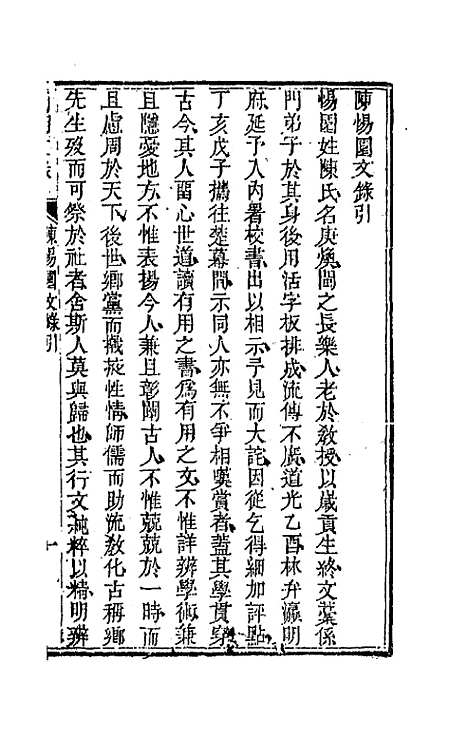 陳惕園文錄引
惕園姓陳氏名庚煥閩之長樂人老於教授以歲貢生終文藁係
門弟子於其身後用活字板排成流傳不廣道光乙酉林弁瀛明
府延予入內署校書出以相示予見而大詫因從乞得細加評點
丁亥戊子攜往楚幕間示同人亦無不爭相嘆賞者蓋其學貫穿
古今其人留心世道讀有用之書爲有用之文不惟詳辨學術兼
且隱憂地方不惟表揚今人兼且彰闡古人不惟兢兢於一時而
且慮周於天下後世鄉黨而擬疢性情師儒而助流敎化古稱鄉
先生歿而可祭於社者舍斯人莫與歸也其行文純粹以精明辨
陳惕園文錄引